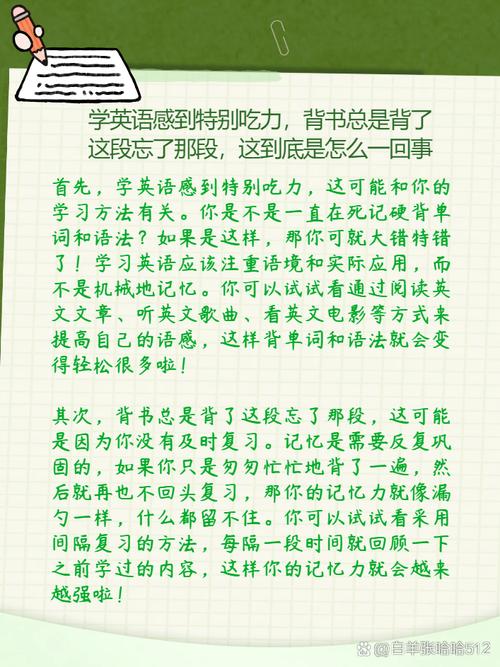 学英语感到特别吃力，背书总是背了
这段忘了那段，这到底是怎么一回事
首先，学英语感到特别吃力，这可能和你的
学习方法有关。你是不是一直在死记硬背单
词和语法？如果是这样，那你可就大错特错
了！学习英语应该注重语境和实际应用，而
不是机械地记忆。你可以试试看通过阅读英
文文章、听英文歌曲、看英文电影等方式来
提高自己的语感，这样背单词和语法就会变
得轻松很多啦！
其次，背书总是背了这段忘了那段，这可能
是因为你没有及时复习。记忆是需要反复巩
固的，如果你只是匆匆忙忙地背了一遍，然
后就再也不回头复习，那你的记忆力就像漏
勺一样，什么都留不住。你可以试试看采用
间隔复习的方法，每隔一段时间就回顾一下
之前学过的内容，这样你的记忆力就会越来
越强啦！
@白羊张哈哈512